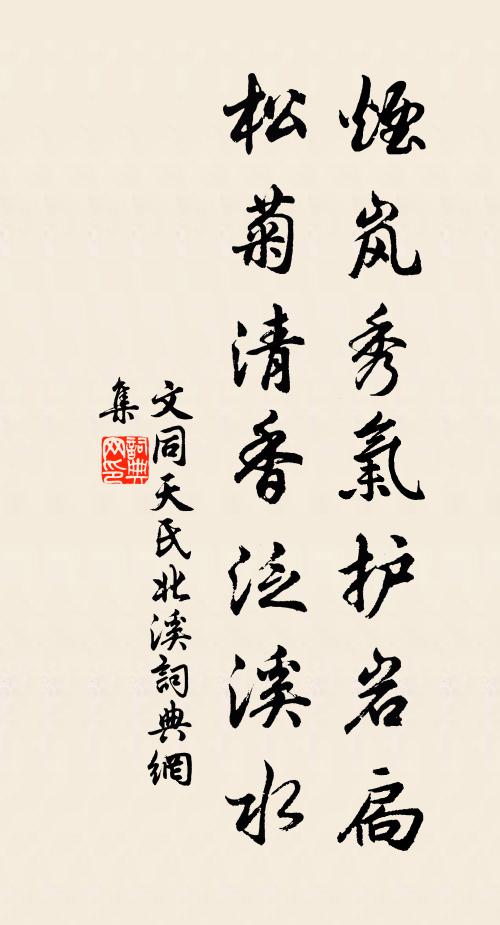 煙岚秀氣护岩扃
松菊清香泛溪水
文同天民北溪詞典網
集
詞典網印